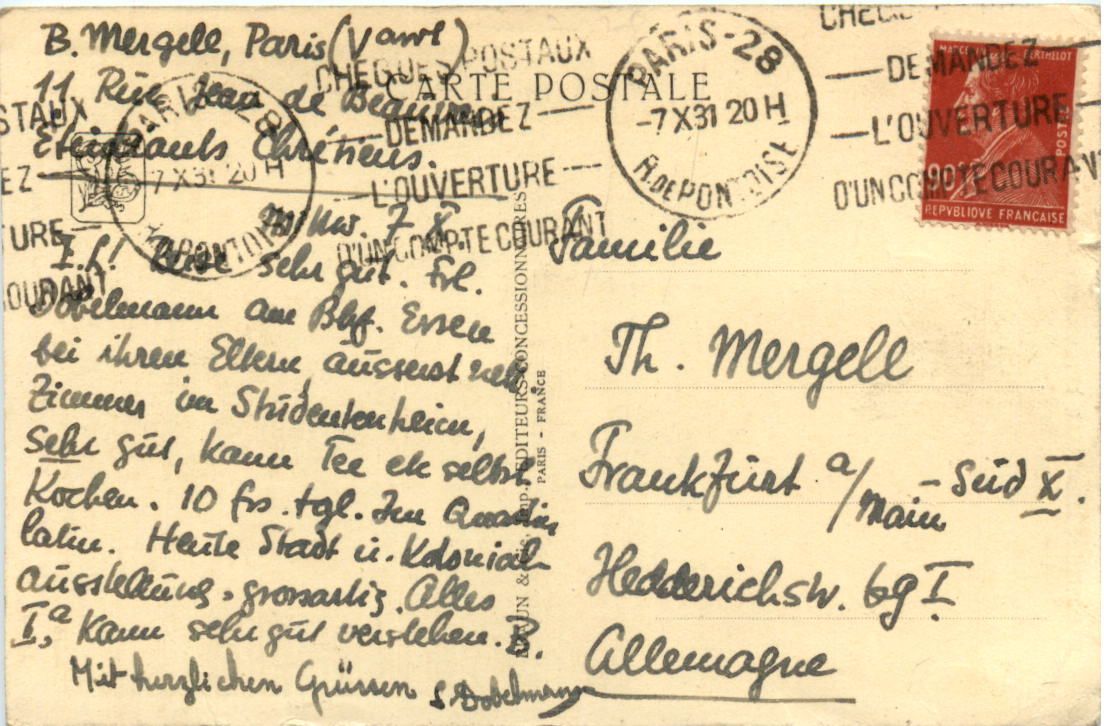 B. Mergell, Paris (Vanv)
11 Rue Jean de Beauvais
Etudiants Chrétiens.
CARTE POSTALE
PARIS-28
-7 X 31 20 H
R. DE PONTOISE
CHEQUES POSTAUX
DEMANDEZ
L'OUVERTURE
D'UN COMPTE COURANT
PARIS-28
7 X 31 20 H
R. DE PONTOISE
STAUX
EZ
TURE
COURANT
CHEQUES
DEMANDEZ
L'OUVERTURE
D'UN COMPTE COURANT
BERTHELOT
90c
POSTES
REPVBLIQVE FRANÇAISE
7. X.
I. L! Reise sehr gut. Frl.
Dobelmann am Bhf. Essen
bei ihren Eltern äusserst nett.
Zimmer im Studentenheim,
sehr gut, kann Tee etc selbst
Kochen. 10 frs. tgl. Im Quartier
latin. Heute Stadt u. Kolonial-
ausstellung, grossartig. Alles
I,a Kann sehr gut verstehen. B.
Mit herzlichen Grüssen Dobelmann
BRAUN & Cie, Imp. EDITEURS-CONCESSIONNAIRES
PARIS - FRANCE
Familie
Th. Mergell
Frankfurt a/Main - Süd X.
Hedderichstr. 69 I
Allemagne